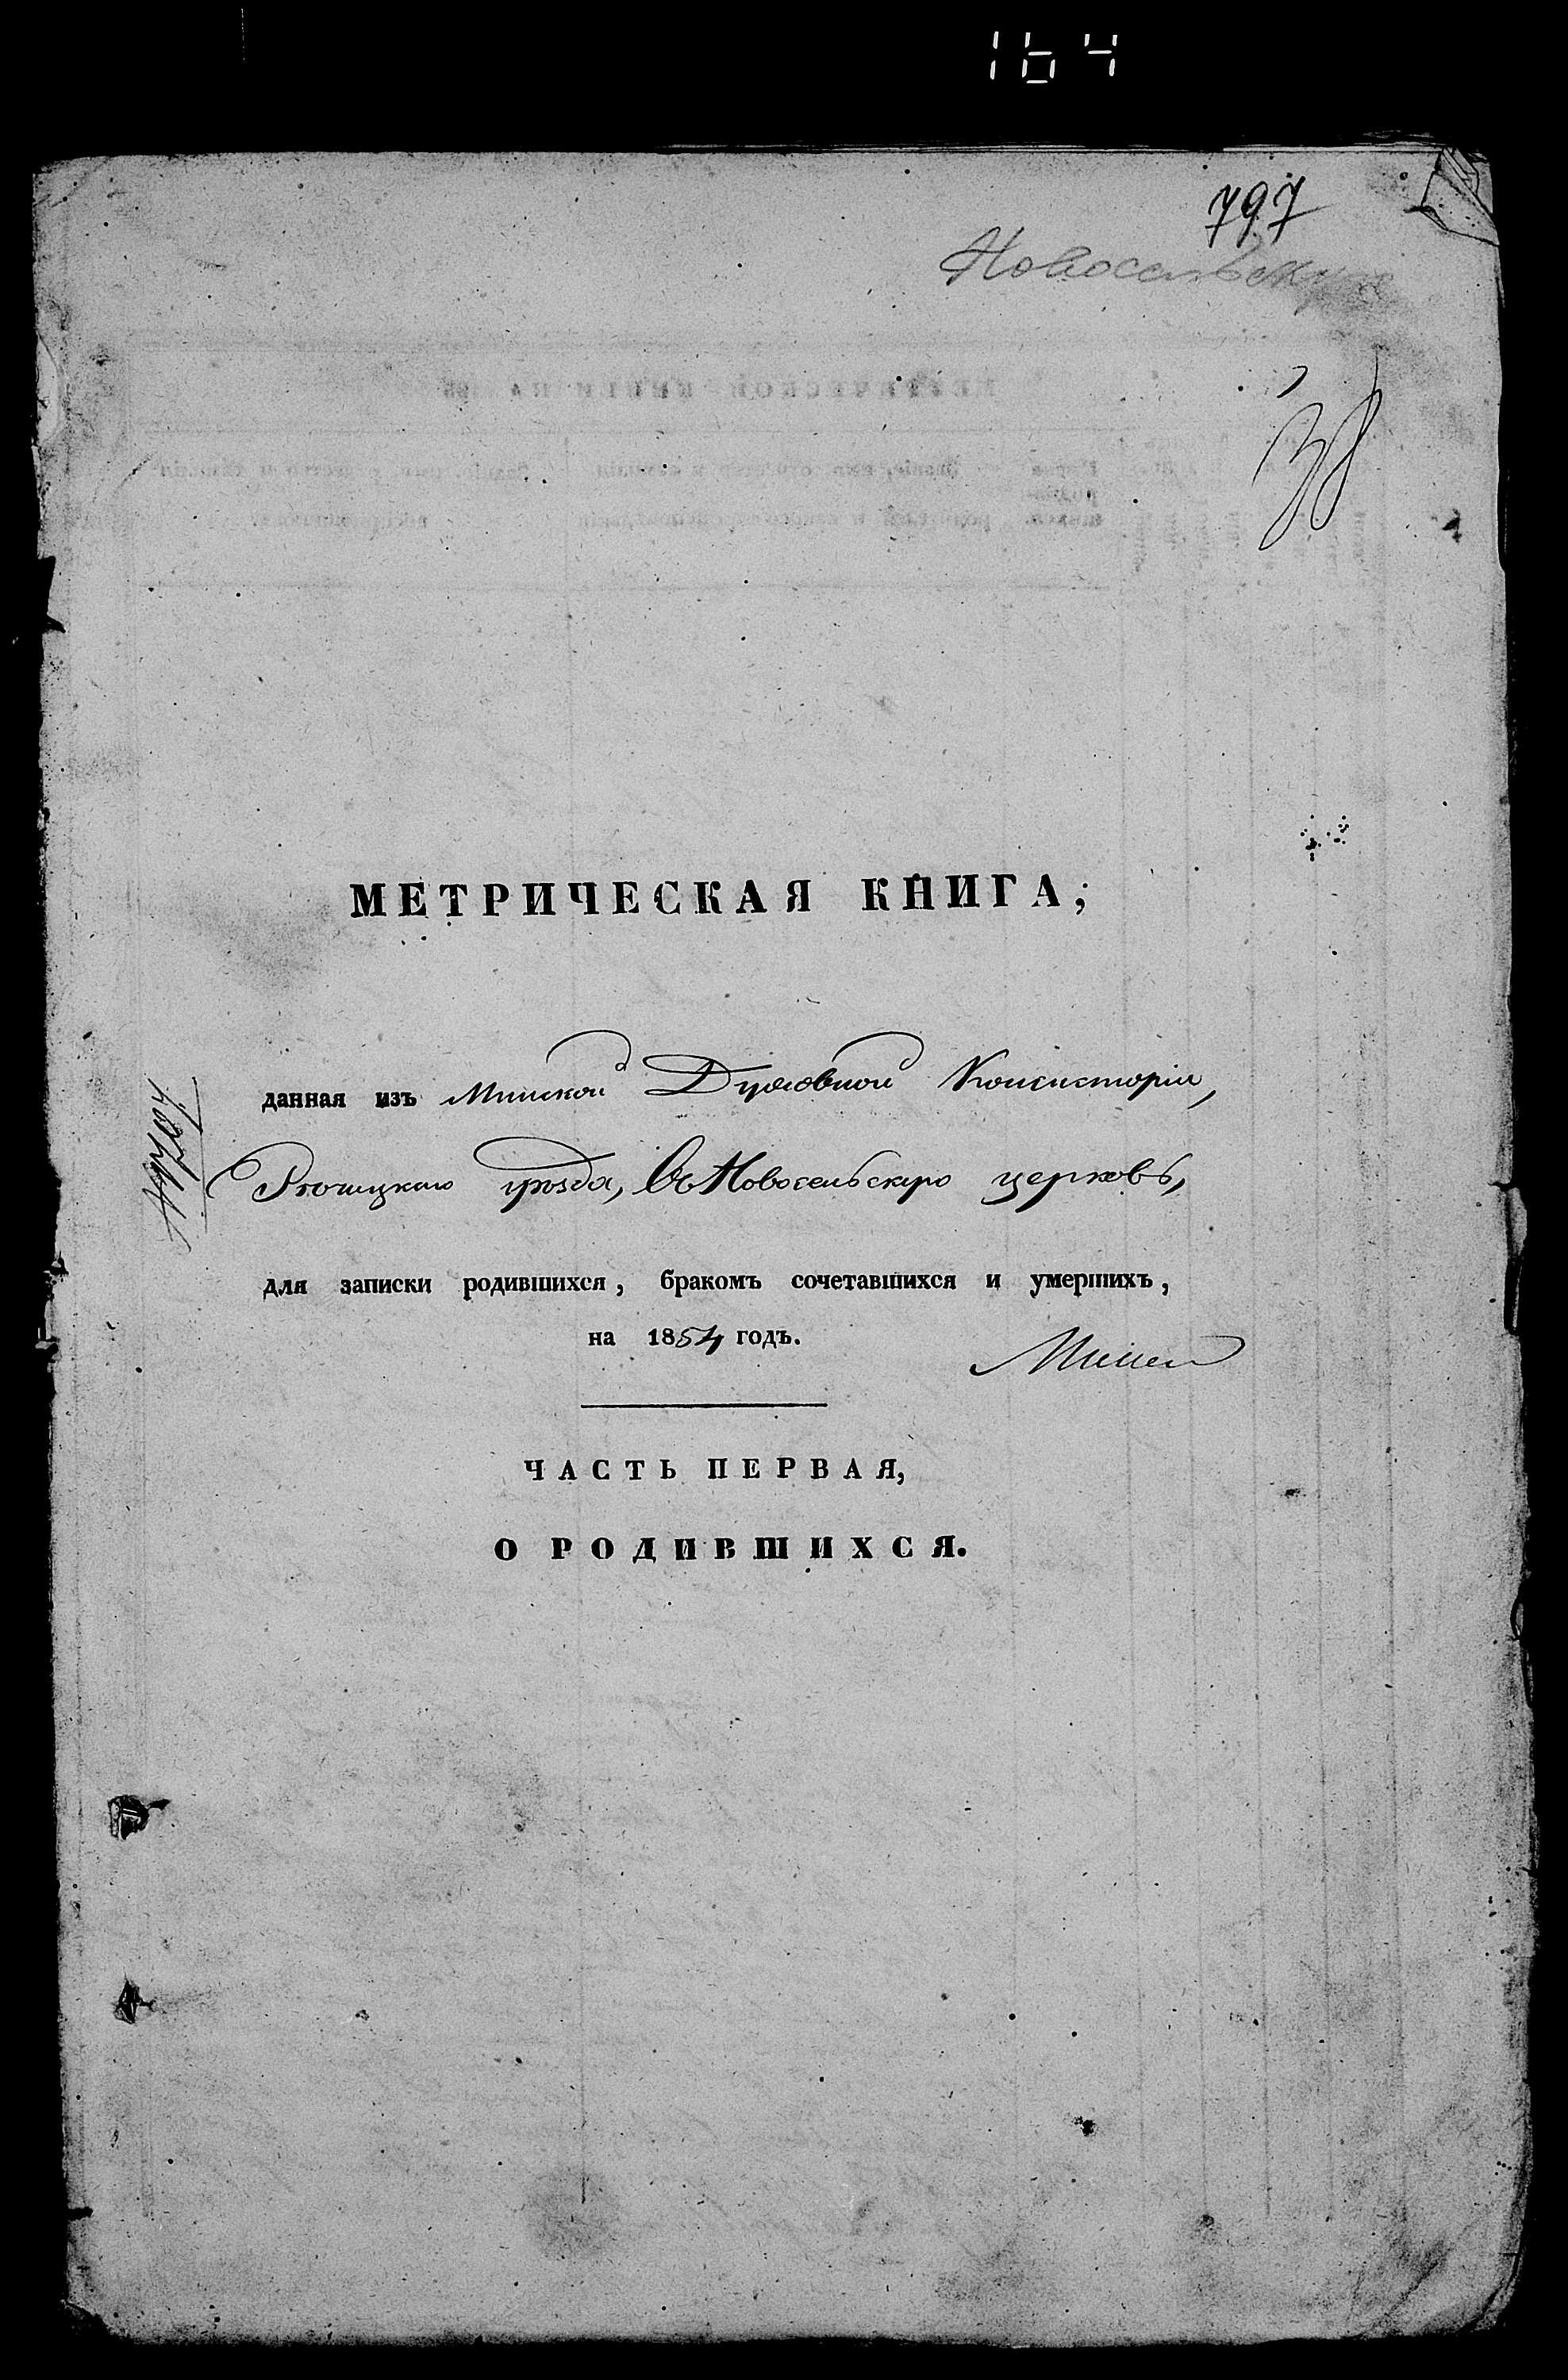 164
797
Новосельскую
38
МЕТРИЧЕСКАЯ КНИГА;
данная изъ Минской Духовной Консисторіи,
Речицкаго уѣзда, въ Новосельскую церковь,
для записки родившихся, бракомъ сочетавшихся и умершихъ,
на 1854 годъ.
ЧАСТЬ ПЕРВАЯ,
О РОДИВШИХСЯ.